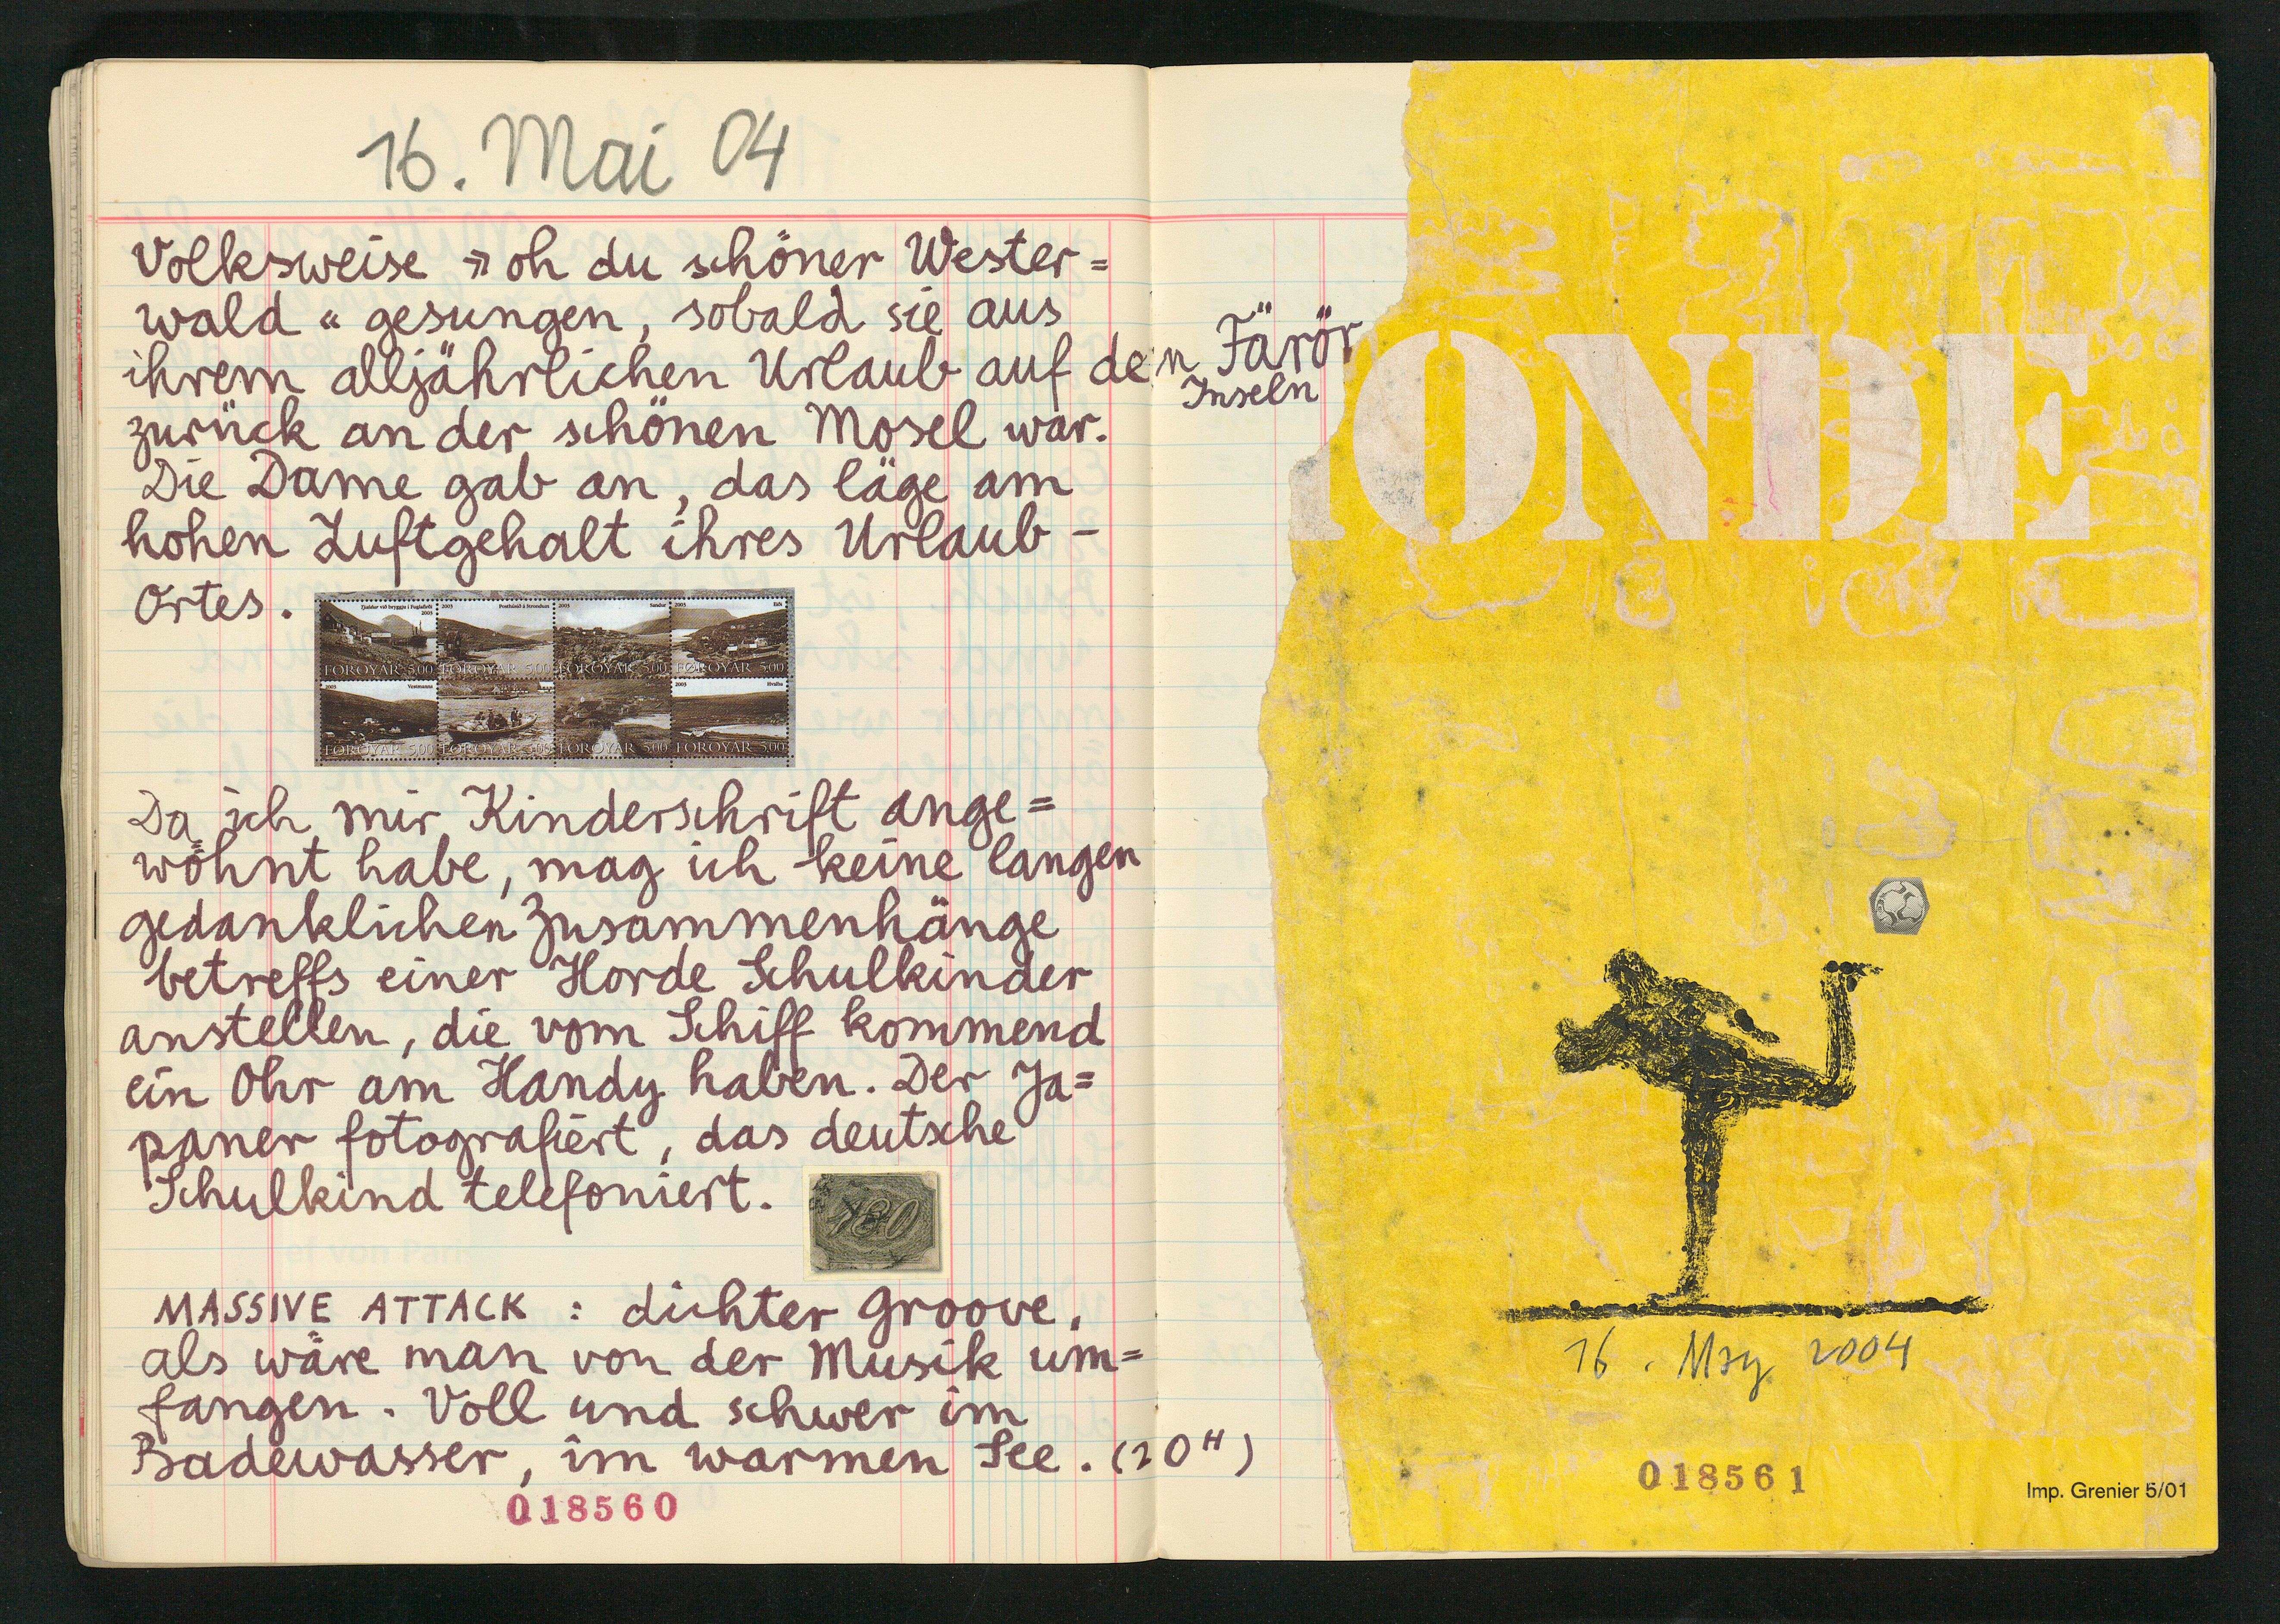 16. Mai 04
Volksweise » oh du schöner Wester=
wald « gesungen, sobald sie aus
ihrem alljährlichen Urlaub auf den Färör
Inseln
zurück an der schönen Mosel war.
Die Dame gab an, das läge am
hohen Luftgehalt ihres Urlaub-
Ortes.
2003
2003
2003
Sandur
2003
Eiði
FØROYAR 5,00
FØROYAR 5,00
FØROYAR 5,00
FØROYAR 5,00
2003
Vestmanna
2003
Hvalba
FØROYAR 5,00
FØROYAR 5,00
FØROYAR 5,00
FØROYAR 5,00
Da ich mir Kinderschrift ange=
wöhnt habe, mag ich keine langen
gedanklichen Zusammenhänge
betreffs einer Horde Schulkinder
anstellen, die vom Schiff kommend
ein Ohr am Handy haben. Der Ja=
paner fotografiert, das deutsche
Schulkind telefoniert.
MASSIVE ATTACK : dichter Groove,
als wäre man von der Musik um=
fangen. Voll und schwer im
Badewasser, im warmen See. (20H)
018560
ONDE
16. May 2004
018561
Imp. Grenier 5/01